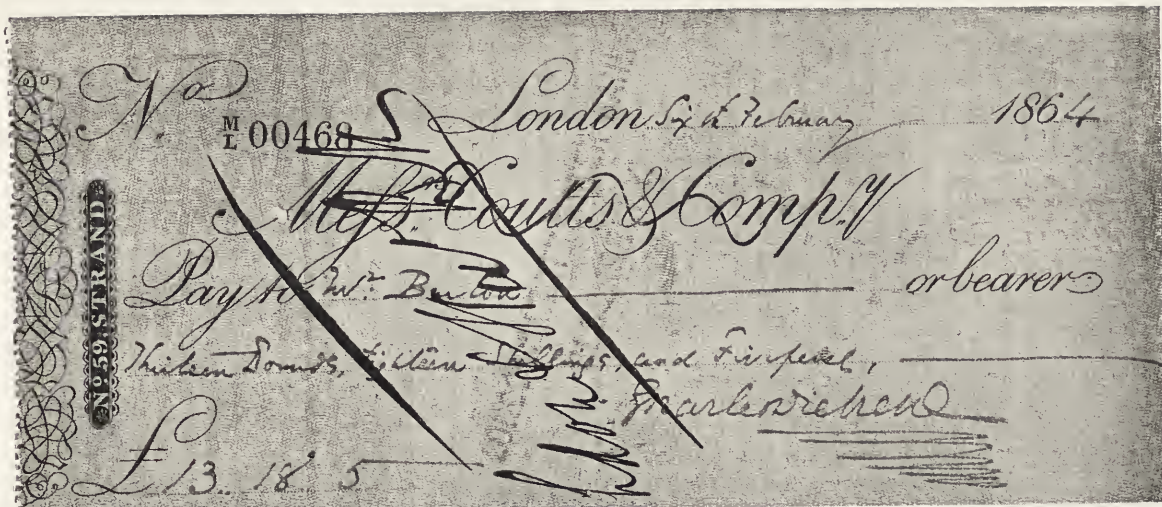 No. ML 00468 London Sixth February 1864
Messrs. Coutts & Compy.
Pay to Mr. Burton or bearer
Thirteen Pounds, Eighteen Shillings, and Fivepence,
Charles Dickens
£13.. 18 5
No. 59, STRAND.